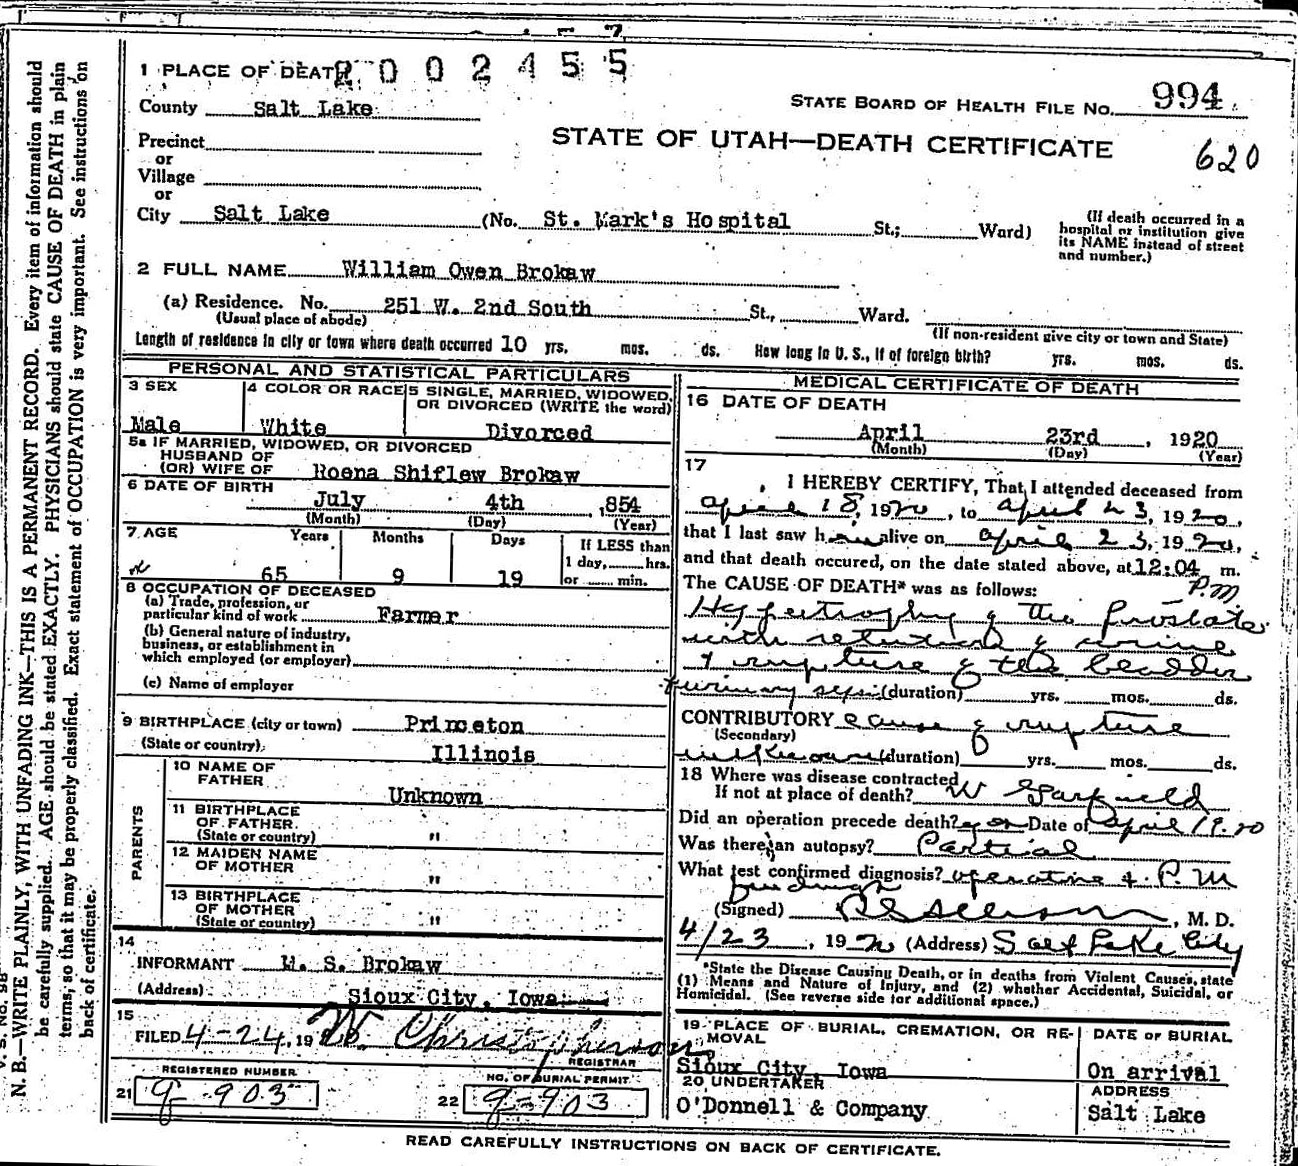 2002455
1 PLACE OF DEATH
STATE BOARD OF HEALTH FILE NO. 994
County Salt Lake
STATE OF UTAH—DEATH CERTIFICATE
620
Precinct
or
Village
or
City Salt Lake (No. St. Mark's Hospital St.; Ward)
(If death occurred in a
hospital or institution give
its NAME instead of street
and number.)
2 FULL NAME William Owen Brokaw
(a) Residence. No. 251 W. 2nd South St., Ward.
(Usual place of abode)
(If non-resident give city or town and State)
Length of residence in city or town where death occurred 10 yrs. mos. ds. How long in U. S., if of foreign birth? yrs. mos. ds.
PERSONAL AND STATISTICAL PARTICULARS
3 SEX
Male
4 COLOR OR RACE
White
5 SINGLE, MARRIED, WIDOWED,
OR DIVORCED (WRITE the word)
Divorced
5a IF MARRIED, WIDOWED, OR DIVORCED
HUSBAND OF
(OR) WIFE OF Roena Shiflew Brokaw
6 DATE OF BIRTH
July 4th ,854
(Month) (Day) (Year)
7 AGE Years Months Days
65 9 19
If LESS than
1 day, hrs.
or min.
8 OCCUPATION OF DECEASED
(a) Trade, profession, or
particular kind of work Farmer
(b) General nature of industry,
business, or establishment in
which employed (or employer)
(c) Name of employer
9 BIRTHPLACE (city or town) Princeton
(State or country) Illinois
PARENTS
10 NAME OF
FATHER Unknown
11 BIRTHPLACE
OF FATHER.
(State or country) "
12 MAIDEN NAME
OF MOTHER "
13 BIRTHPLACE
OF MOTHER
(State or country) "
14
INFORMANT W. S. Brokaw
(Address) Sioux City, Iowa
15
FILED 4-24, 1920 Christopherson
REGISTRAR
REGISTERED NUMBER
21 9-903
NO. OF BURIAL PERMIT
22 9-903
MEDICAL CERTIFICATE OF DEATH
16 DATE OF DEATH
April 23rd , 1920
(Month) (Day) (Year)
17
I HEREBY CERTIFY, That I attended deceased from
April 18, 1920, to April 23, 1920,
that I last saw him alive on April 23, 1920,
and that death occured, on the date stated above, at 12:04 m.
P.M
The CAUSE OF DEATH* was as follows:
Hypertrophy of the prostate
with retention of urine
& rupture of the bladder
+ urinary sepsis (duration) yrs. mos. ds.
CONTRIBUTORY cause of rupture
(Secondary)
unknown (duration) yrs. mos. ds.
18 Where was disease contracted
If not at place of death? W Garfield
Did an operation precede death? yes Date of April 19. 20
Was there an autopsy? Partial
What test confirmed diagnosis? operative & P.M
findings
(Signed) , M. D.
4/23, 1920 (Address) Salt Lake City
*State the Disease Causing Death, or in deaths from Violent Causes, state
(1) Means and Nature of Injury, and (2) whether Accidental, Suicidal, or
Homicidal. (See reverse side for additional space.)
19 PLACE OF BURIAL, CREMATION, OR RE-
MOVAL
Sioux City, Iowa
DATE OF BURIAL
On arrival
20 UNDERTAKER
O'Donnell & Company
ADDRESS
Salt Lake
READ CAREFULLY INSTRUCTIONS ON BACK OF CERTIFICATE.
V. S. No. 98
N. B.—WRITE PLAINLY, WITH UNFADING INK—THIS IS A PERMANENT RECORD. Every item of information should
be carefully supplied. AGE should be stated EXACTLY. PHYSICIANS should state CAUSE OF DEATH in plain
terms, so that it may be properly classified. Exact statement of OCCUPATION is very important. See instructions on
back of certificate.